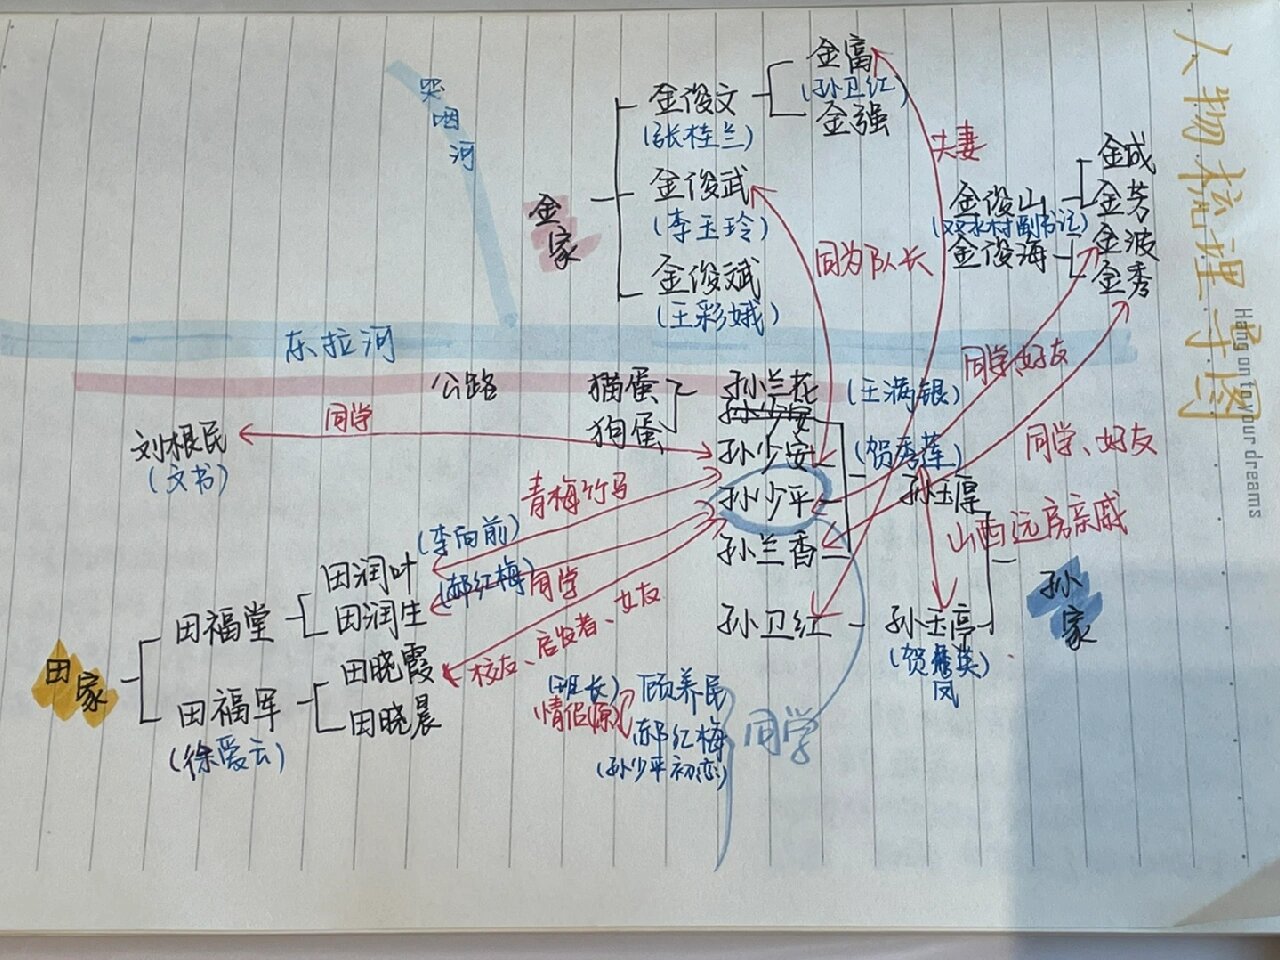 人物梳理导图
Hang on to your dreams
哭咽河
金家
金俊文
(张桂兰)
金富
(孙卫红)
金强
金俊武
(李玉玲)
金俊斌
(王彩娥)
夫妻
同为队长
金俊山
(双水村副书记)
金成
金芳
金俊海
金波
金秀
同学好友
同学、好友
东拉河
公路
猫蛋
狗蛋
孙兰花
(王满银)
孙少安
孙少安
(贺秀莲)
孙少平
孙兰香
孙玉厚
山西远房亲戚
孙家
孙卫红
孙玉亭
(贺秀英)
凤
刘根民
(文书)
同学
青梅竹马
(李向前)
田润叶
(郝红梅)
同学
田润生
田福堂
田家
田晓霞
校友、启发者、女友
田福军
(徐爱云)
田晓晨
(班长)
顾养民
情侣(原)
郝红梅
(孙少平初恋)
同学